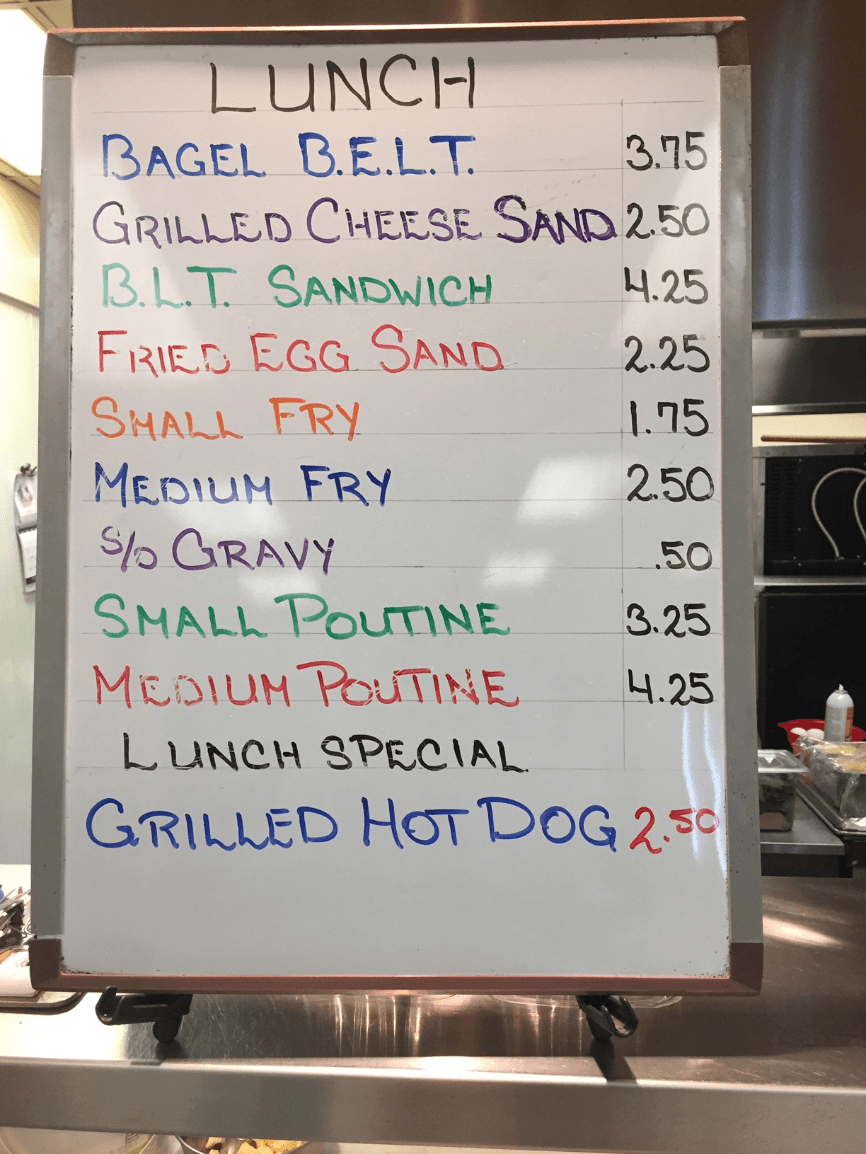 LUNCH
BAGEL B.E.L.T. 3.75
GRILLED CHEESE SAND 2.50
B.L.T. SANDWICH 4.25
FRIED EGG SAND 2.25
SMALL FRY 1.75
MEDIUM FRY 2.50
S/O GRAVY .50
SMALL POUTINE 3.25
MEDIUM POUTINE 4.25
LUNCH SPECIAL
GRILLED HOT DOG 2.50